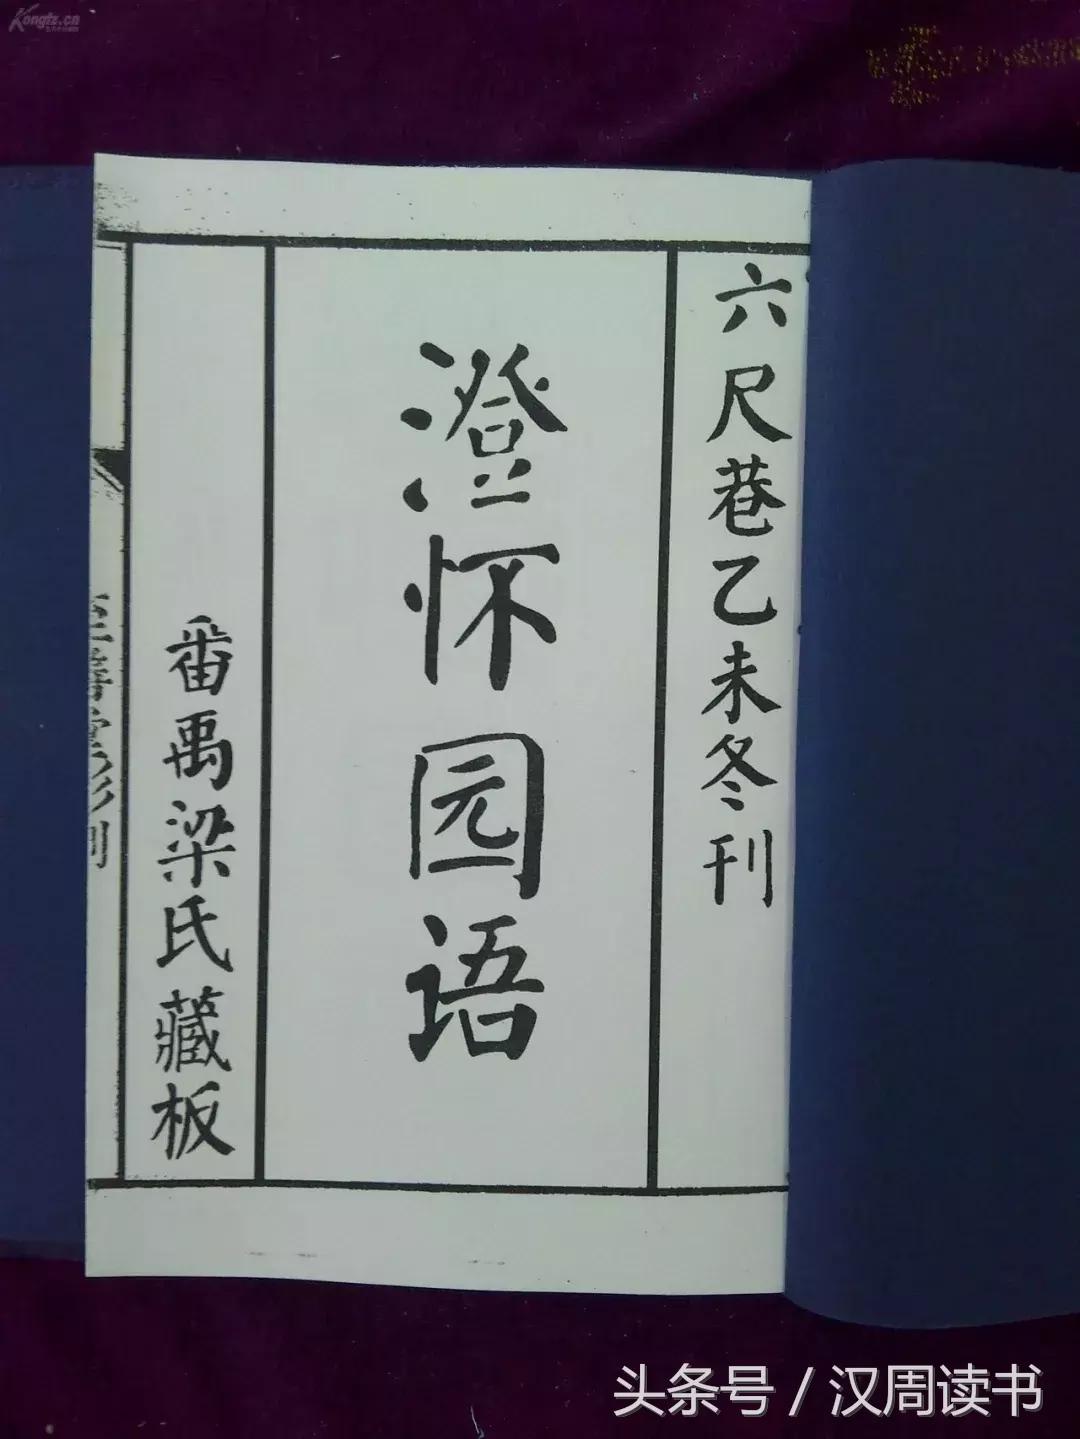 Kongfz.cn
六尺巷乙未冬刊
澄怀园语
番禺梁氏藏板
头条号 / 汉周读书